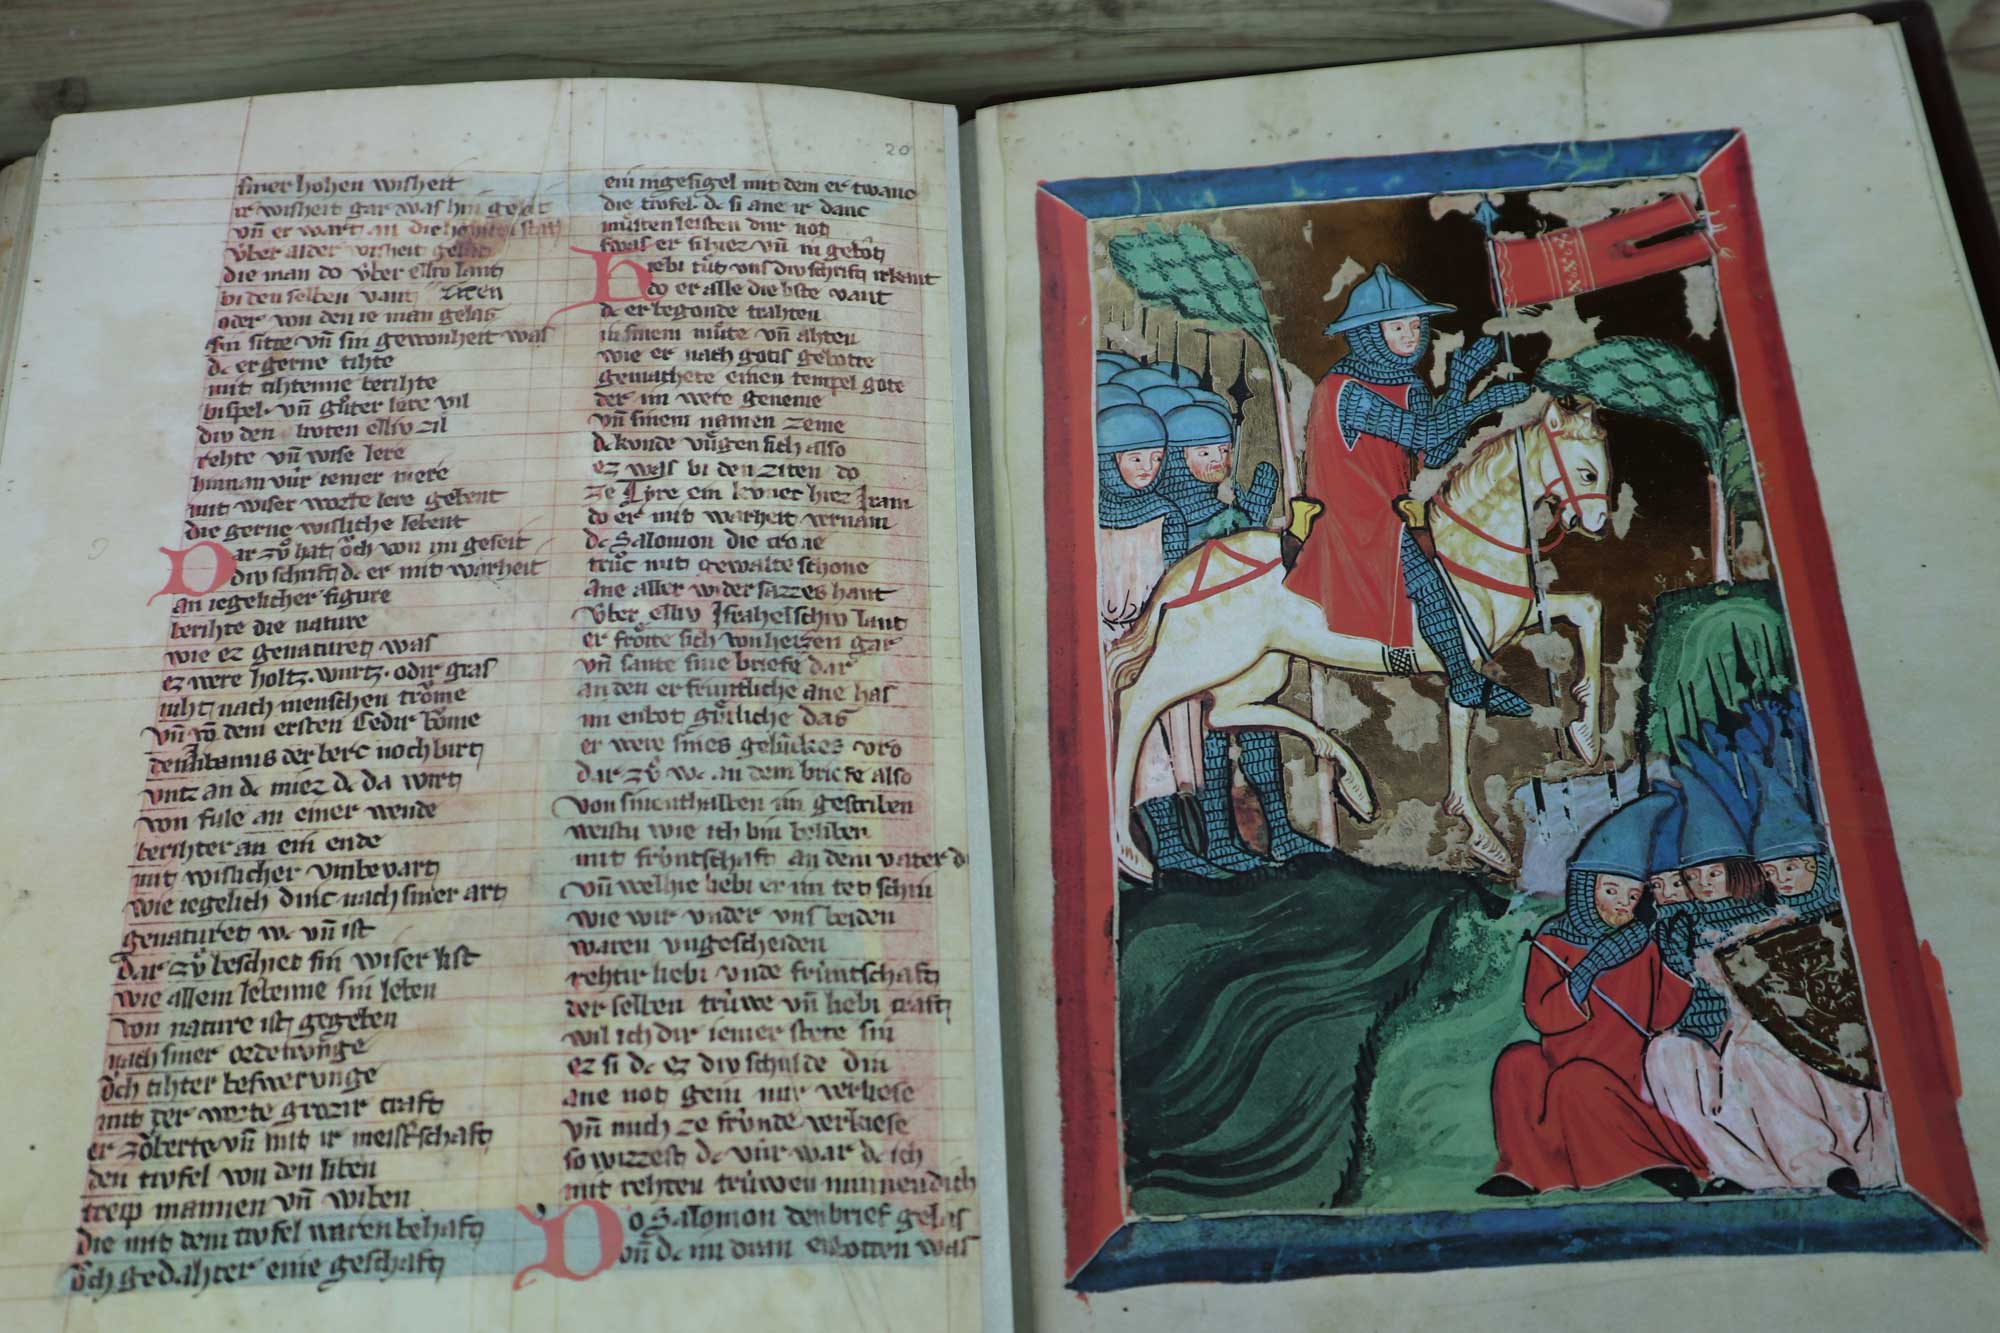 20
siner hohen wisheit
ir wisheit gar was hin geleit
vn̄ er wart an die
v̊ber alder wisheit
die man do v̊ber elliv lant
bi den selben vant
oder von den ie man gelas
sin sitte vn̄ sin gewonheit was
dc er gerne tihte
mit tihtenne berihte
bispel vn̄ gůter lere vil
div den livten elliv zil
rehte vn̄ wise lere
hinnan vúr iemer mere
mit wiser worte lere gebent
die gerne wisliche lebent
Dar zů hat ŏch von im geseit
div schrift dc er mit warheit
an iegelicher figure
berihte die nature
wie ez genaturet was
ez were holtz. wurtz. odir gras
niht nach menschen trŏme
vn̄ vō dem ersten Cedir bŏme
den libanus der berc noch birt
vntz an dc miez dc da wirt
von fule an einer wende
berihter an ein ende
mit wislicher vmbevart
wie iegelich dinc nach siner art
genaturet wc vn̄ ist
dar zů beschiet sin wiser list
wie allem lebenne sin leben
von nature ist gegeben
nach siner ordenvnge
ŏch tihter beswervnge
mit der worte grozir craft
er zŏberte vn̄ mit ir meisterschaft
den tivfel von den liben
treip mannen vn̄ wiben
die mit dem tivfel waren behaft
ŏch gedahter eine geschaft
ein ingesigel mit dem er twanc
die tivfel dc si ane ir danc
můsten leisten dur not
swas er si hiez vn̄ in gebot
Hiebi tůt vns div schrift irkant
do er alle die liste vant
dc er begonde trahten
in sinem můte vn̄ ahten
wie er nach gotis gebotte
gemachete einen tempel gote
der im were geneme
vn̄ sinem namen zeme
dc kunde vůgen sich also
ez was bi den ziten do
ze Tyre ein kvnec hiez Iram
do er mit warheit vernam
dc Salomon die crone
trůc mit gewalte schone
ane aller wider sazzes hant
v̊ber elliv Israhelschiv lant
er frŏite sich von herzen gar
vn̄ sante sine briefe dar
an den er fruntliche ane has
im enbot gůtliche das
er were sines gelúckes vro
dar zů wc an dem briefe also
von sinenthalben im geschriben
weistu wie ich bin beliben
mit frúntschaft an dem vater din
vn̄ welhie liebi er im tet schin
wie wir vnder vns beiden
waren vngescheiden
rehtir liebi vnde frúntschaft
der selben trúwe vn̄ liebi craft
wil ich dir iemer stete sin
ez si dc ez div schulde din
ane not gein mir verliese
vn̄ mich ze frúnde verkiese
so wizzest dc vúr war dc ich
mit rehten trúwen minnen dich
Do Salomon den brief gelas
vn̄ dc im dran enbotten was